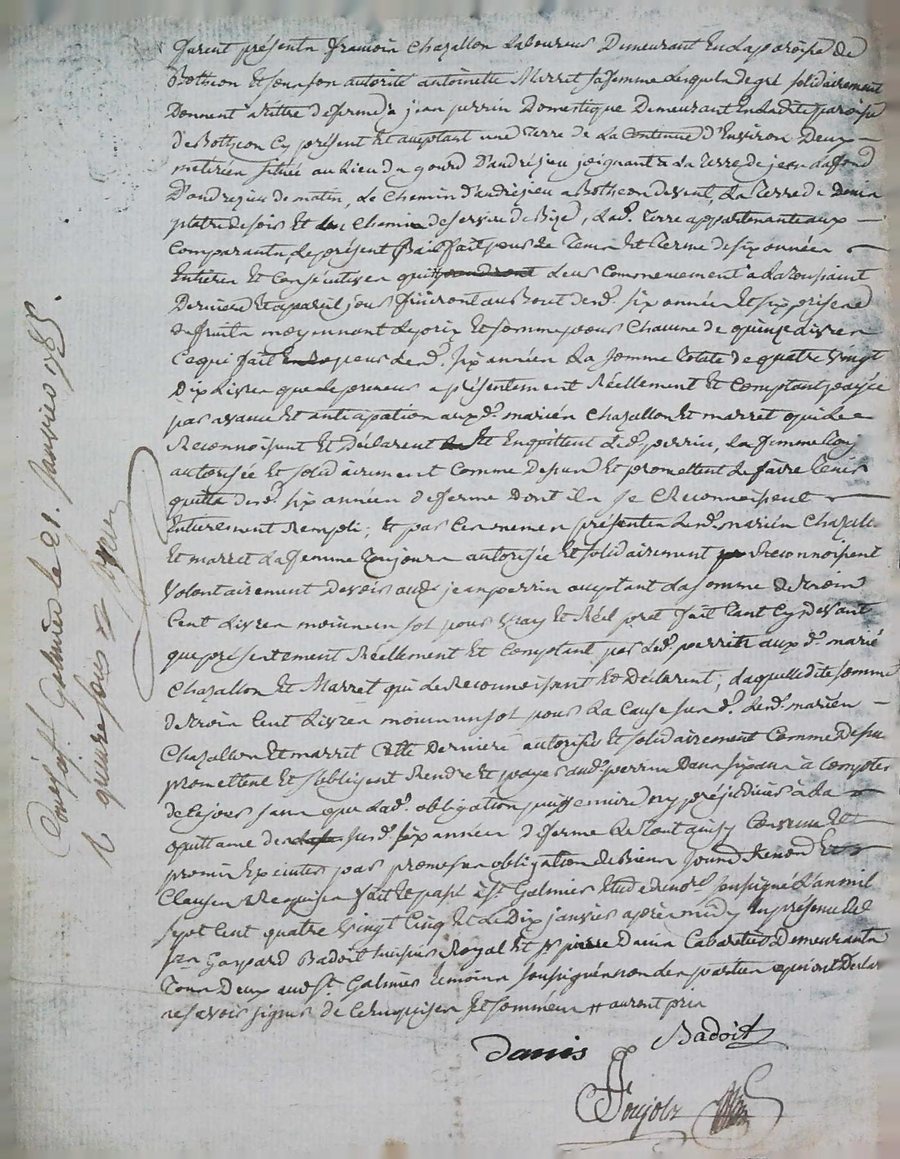 furent présents françois Chazallon Laboureur Demeurant En La paroisse de
Bothéon Et sous son autorité antoinette Merret sa femme Lesquels de gré solidairement
Donnent a tittre de ferme a jean perrin Domestique Demeurant En Ladite paroisse
de Bothéon Cy présent Et aceptant une Terre de La Contenue d'Environ Deux
située au Lieu du gourd D'andrézieu joignant a La Terre de jean Lafond
D'andrezieu de matin, Le Chemin d'andrézieu a Bothéon de vent, La Terre de
de soir Et Chemin de service de Bize, Lad. terre appartenante aux
Comparants, Le présent Bail fait pour Le Tems Et Terme de six années
Entières Et Consécutives qui prendront Leur Commencement a La Toussaint
Derniere Et a pareil jour finiront au Bout desd. six années Et six prises de
fruits moyennant Le prix Et somme pour Chacune de quinze Livres
Ce qui fait pour Lesd. six années La somme totale de quatre Vingt
Dix Livres que Le preneur a présentement Réellement Et Comptant payée
par avance Et anticipation auxd. mariés Chazallon Et marret qui Le
Reconnoissent Et Déclarent Et En quittent Led. perrin, La femme
autorisée Et solidairement Comme dessus Et promettent de faire Tenir
quitte desd. six années de ferme dont ils se Reconnoissent
Entierement Rempli; Et par Ces memes présentes Lesd. mariés Chazallon
Et marret La femme Toujours autorisée Et solidairement Reconnoissent
Volontairement Devoir aud. jean perrin aceptant La somme de trois
Cent Livres moins un sol pour Vray Et Réel pret fait tant Cy devant
que présentement Réellement Et Comptant par Led. perrin aux d. mariés
Chazallon Et Marret qui Le Reconnoissent Et Déclarent; Laquelle dite somme
de trois Cent Livres moins un sol pour La Cause sus d. Lesd. mariés
Chazallon Et marret Cette Derniere autorisée Et solidairement Comme Dessus
promettent Et s'obligent Rendre Et payer aud. perrin Dans six ans a Compter
de Ce jour sans que Lad. obligation puisse nuire ny préjudicier a La
quittance des susd. six années de ferme Le Tout ainsy Convenu Et
promis Executer par promesse obligation de Biens soumis Renond. Et
Clauses Requises fait Et passé a St. Galmier Etude du no.re soussigné L'an mil
sept Cent quatre Vingt Cinq Et Le Dix janvier après midy En présence de
sr. Gaspard Badoit huissier Royal Et pierre Danis Cabaretier Demeurants
Tous Deux aud. St. Galmier Témoins soussignés non Les parties qui ont Déclaré
ne savoir signer de Ce Requises Et sommées
Danis Badoit
Poujolz
St. Galmier le 21. Janvier 1785.
R quinze sous